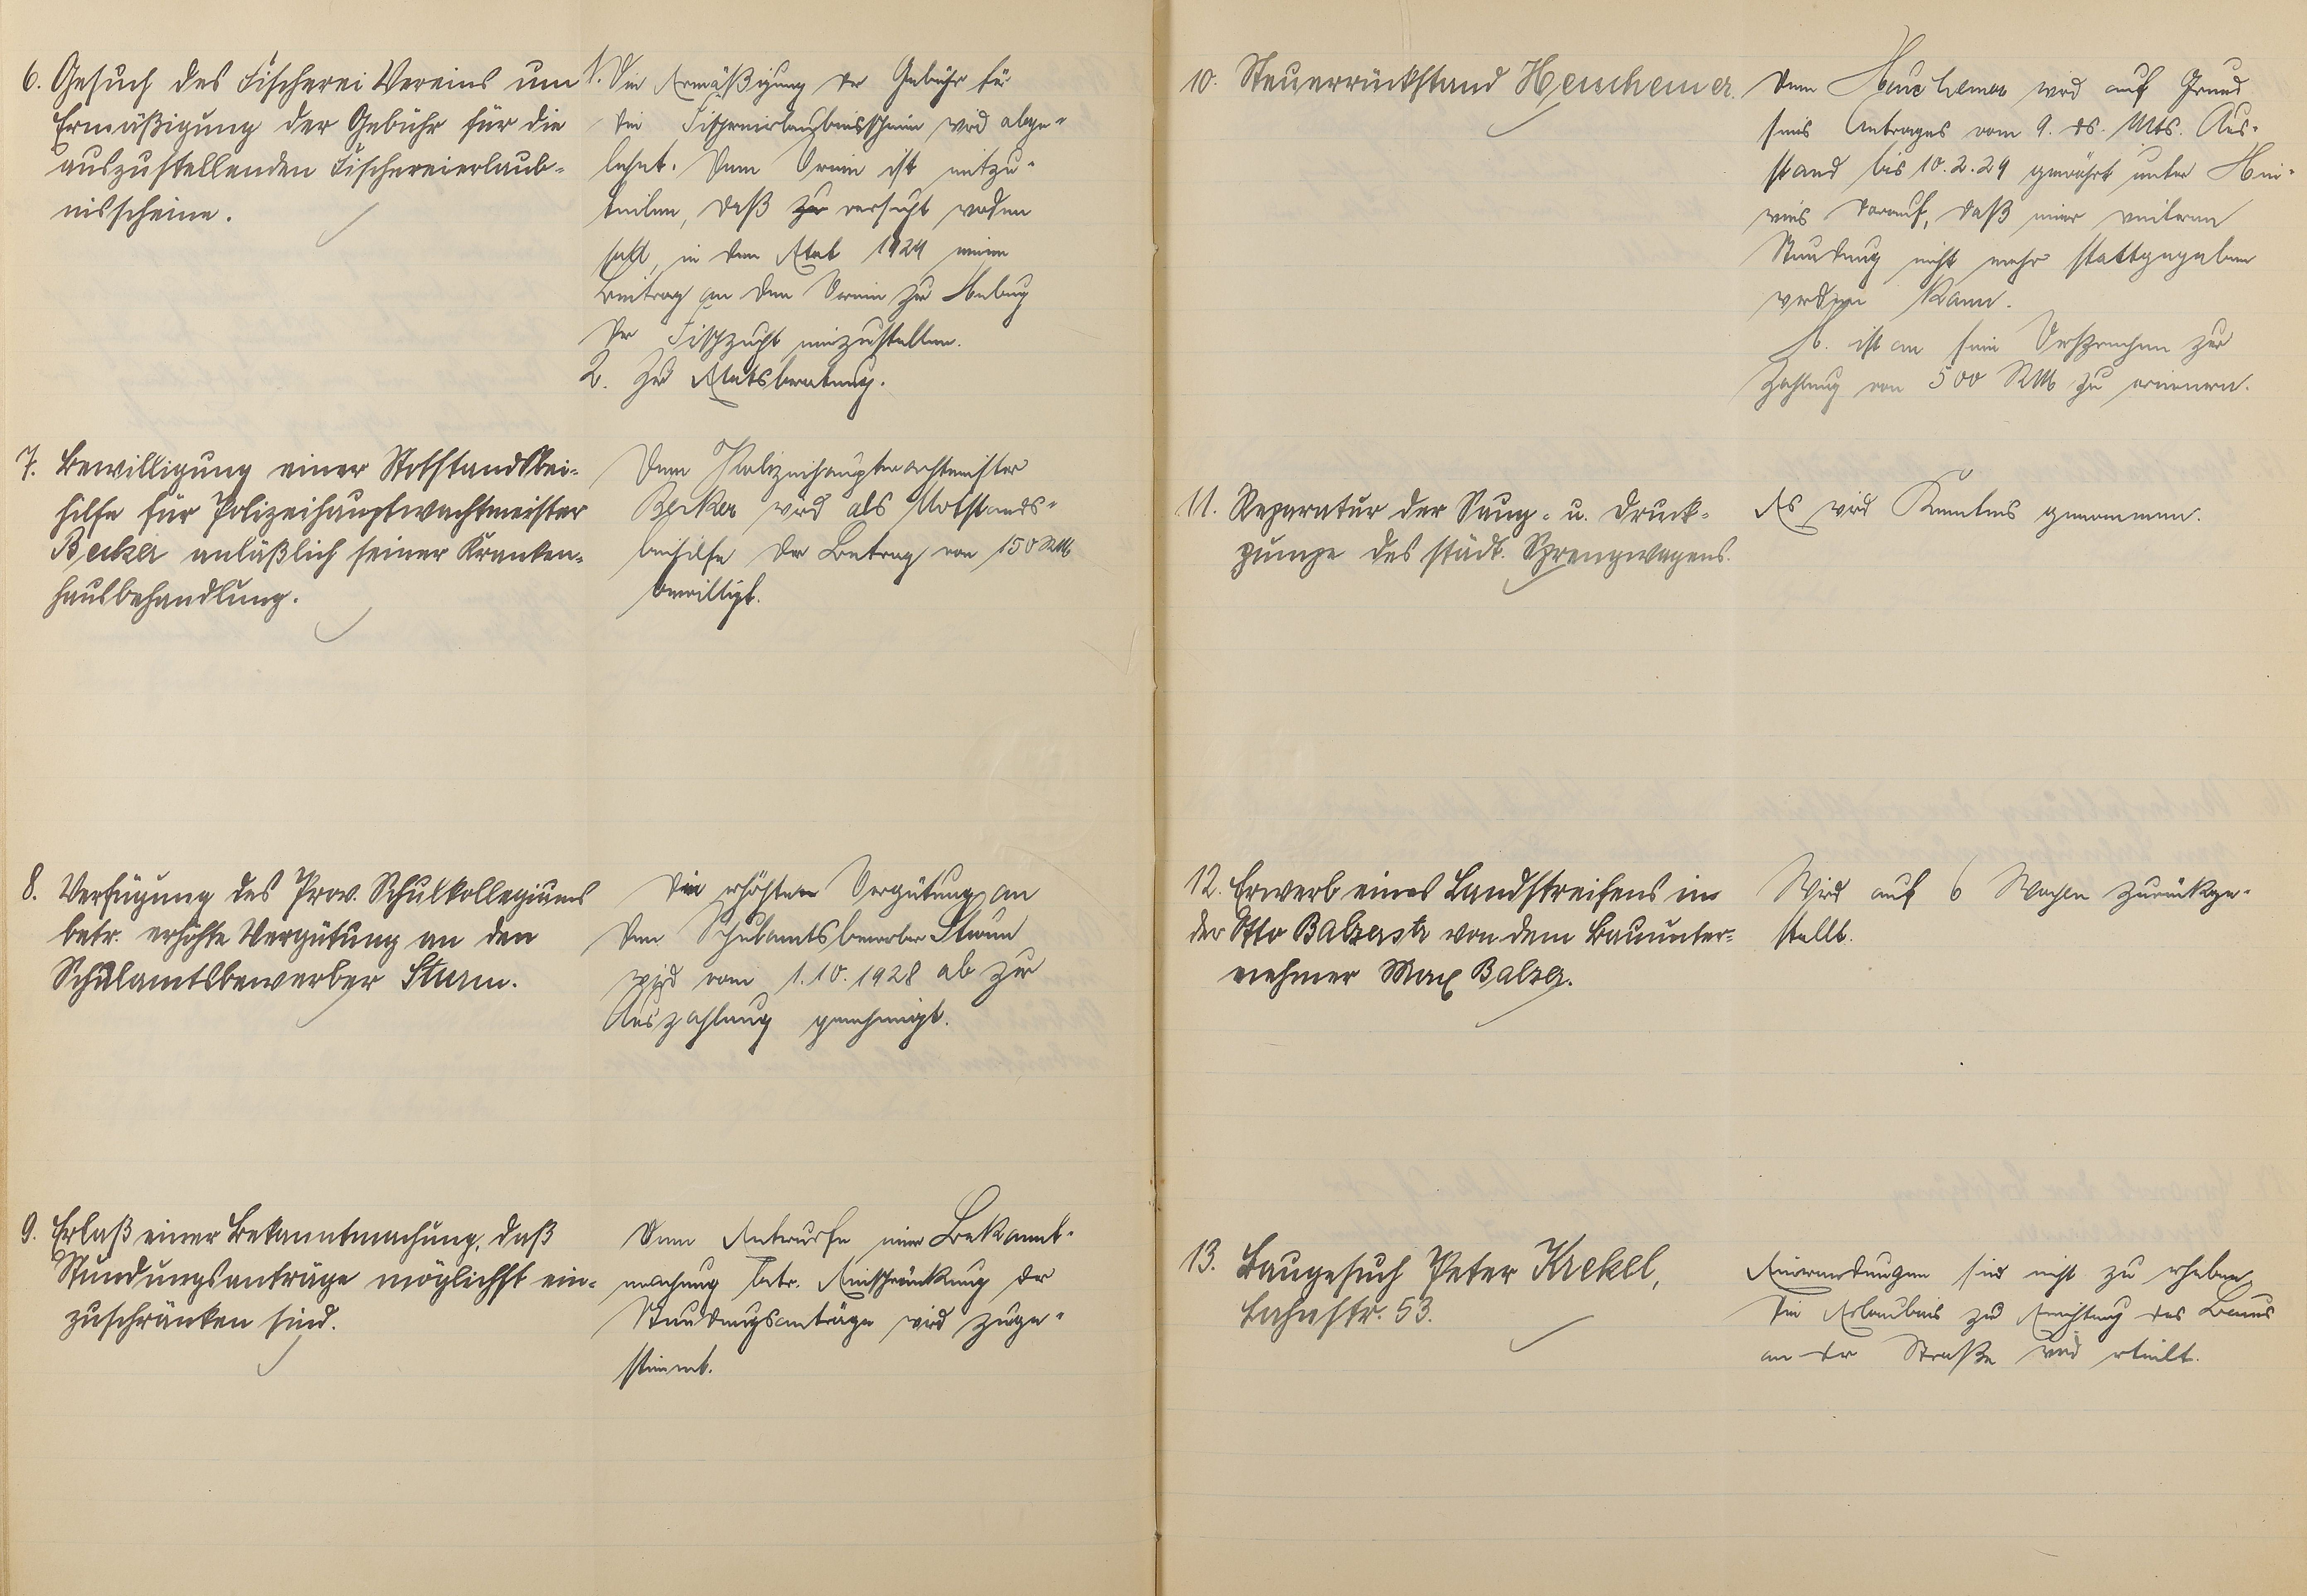 6. Gesuch des Fischerei Vereins um
Ermäßigung der Gebühr für die
auszustellenden Fischereierlaub-
nisscheine.
1. Die Ermäßigung der Gebühr für
die Fischereierlaubnisscheine wird abge-
lehnt. Dem Verein ist mitzu-
teilen, daß versucht werden
soll, in dem Etat 1929 einen
Beitrag an den Verein zur Hebung
der Fischzucht einzustellen.
2. Zur Etatsberatung.
7. Bewilligung einer Notstandsbei-
hilfe für Polizeihauptwachtmeister
Becker anläßlich seiner Kranken-
hausbehandlung.
Dem Polizeihauptwachtmeister
Becker wird als Notstands-
beihilfe der Betrag von 150 RM
bewilligt.
8. Verfügung des Prov. Schulkollegiums
betr. erhöhte Vergütung an den
Schulamtsbewerber Sturm.
Die erhöhte Vergütung an
den Schulamtsbewerber Sturm
wird vom 1.10.1928 ab zur
Auszahlung genehmigt.
9. Erlaß einer Bekanntmachung, daß
Stundungsanträge möglichst ein-
zuschränken sind.
Dem Entwurfe einer Bekannt-
machung betr. Einschränkung der
Stundungsanträge wird zuge-
stimmt.
10. Steuerrückstand
Dem wird auf Grund
seines Antrages vom 9. ds. Mts. Aus-
stand bis 10.2.29 gewährt unter Hin-
weis darauf, daß einer weiteren
Stundung nicht mehr stattgegeben
werden kann.
H. ist an sein Versprechen zur
Zahlung von 500 RM zu erinnern.
11. Reparatur der Saug- u. Druck-
pumpe des städt. Sprengwagens.
Es wird Kenntnis genommen.
12. Erwerb eines Landstreifens in
der Otto Balzerstr von dem Bauunter-
nehmer Max Balzer.
Wird auf 6 Wochen zurückge-
stellt.
13. Baugesuch Peter Krekel,
Lahnstr. 53.
Einwendungen sind nicht zu erheben,
die Erlaubnis zur Errichtung des Baues
an der Straße wird erteilt.